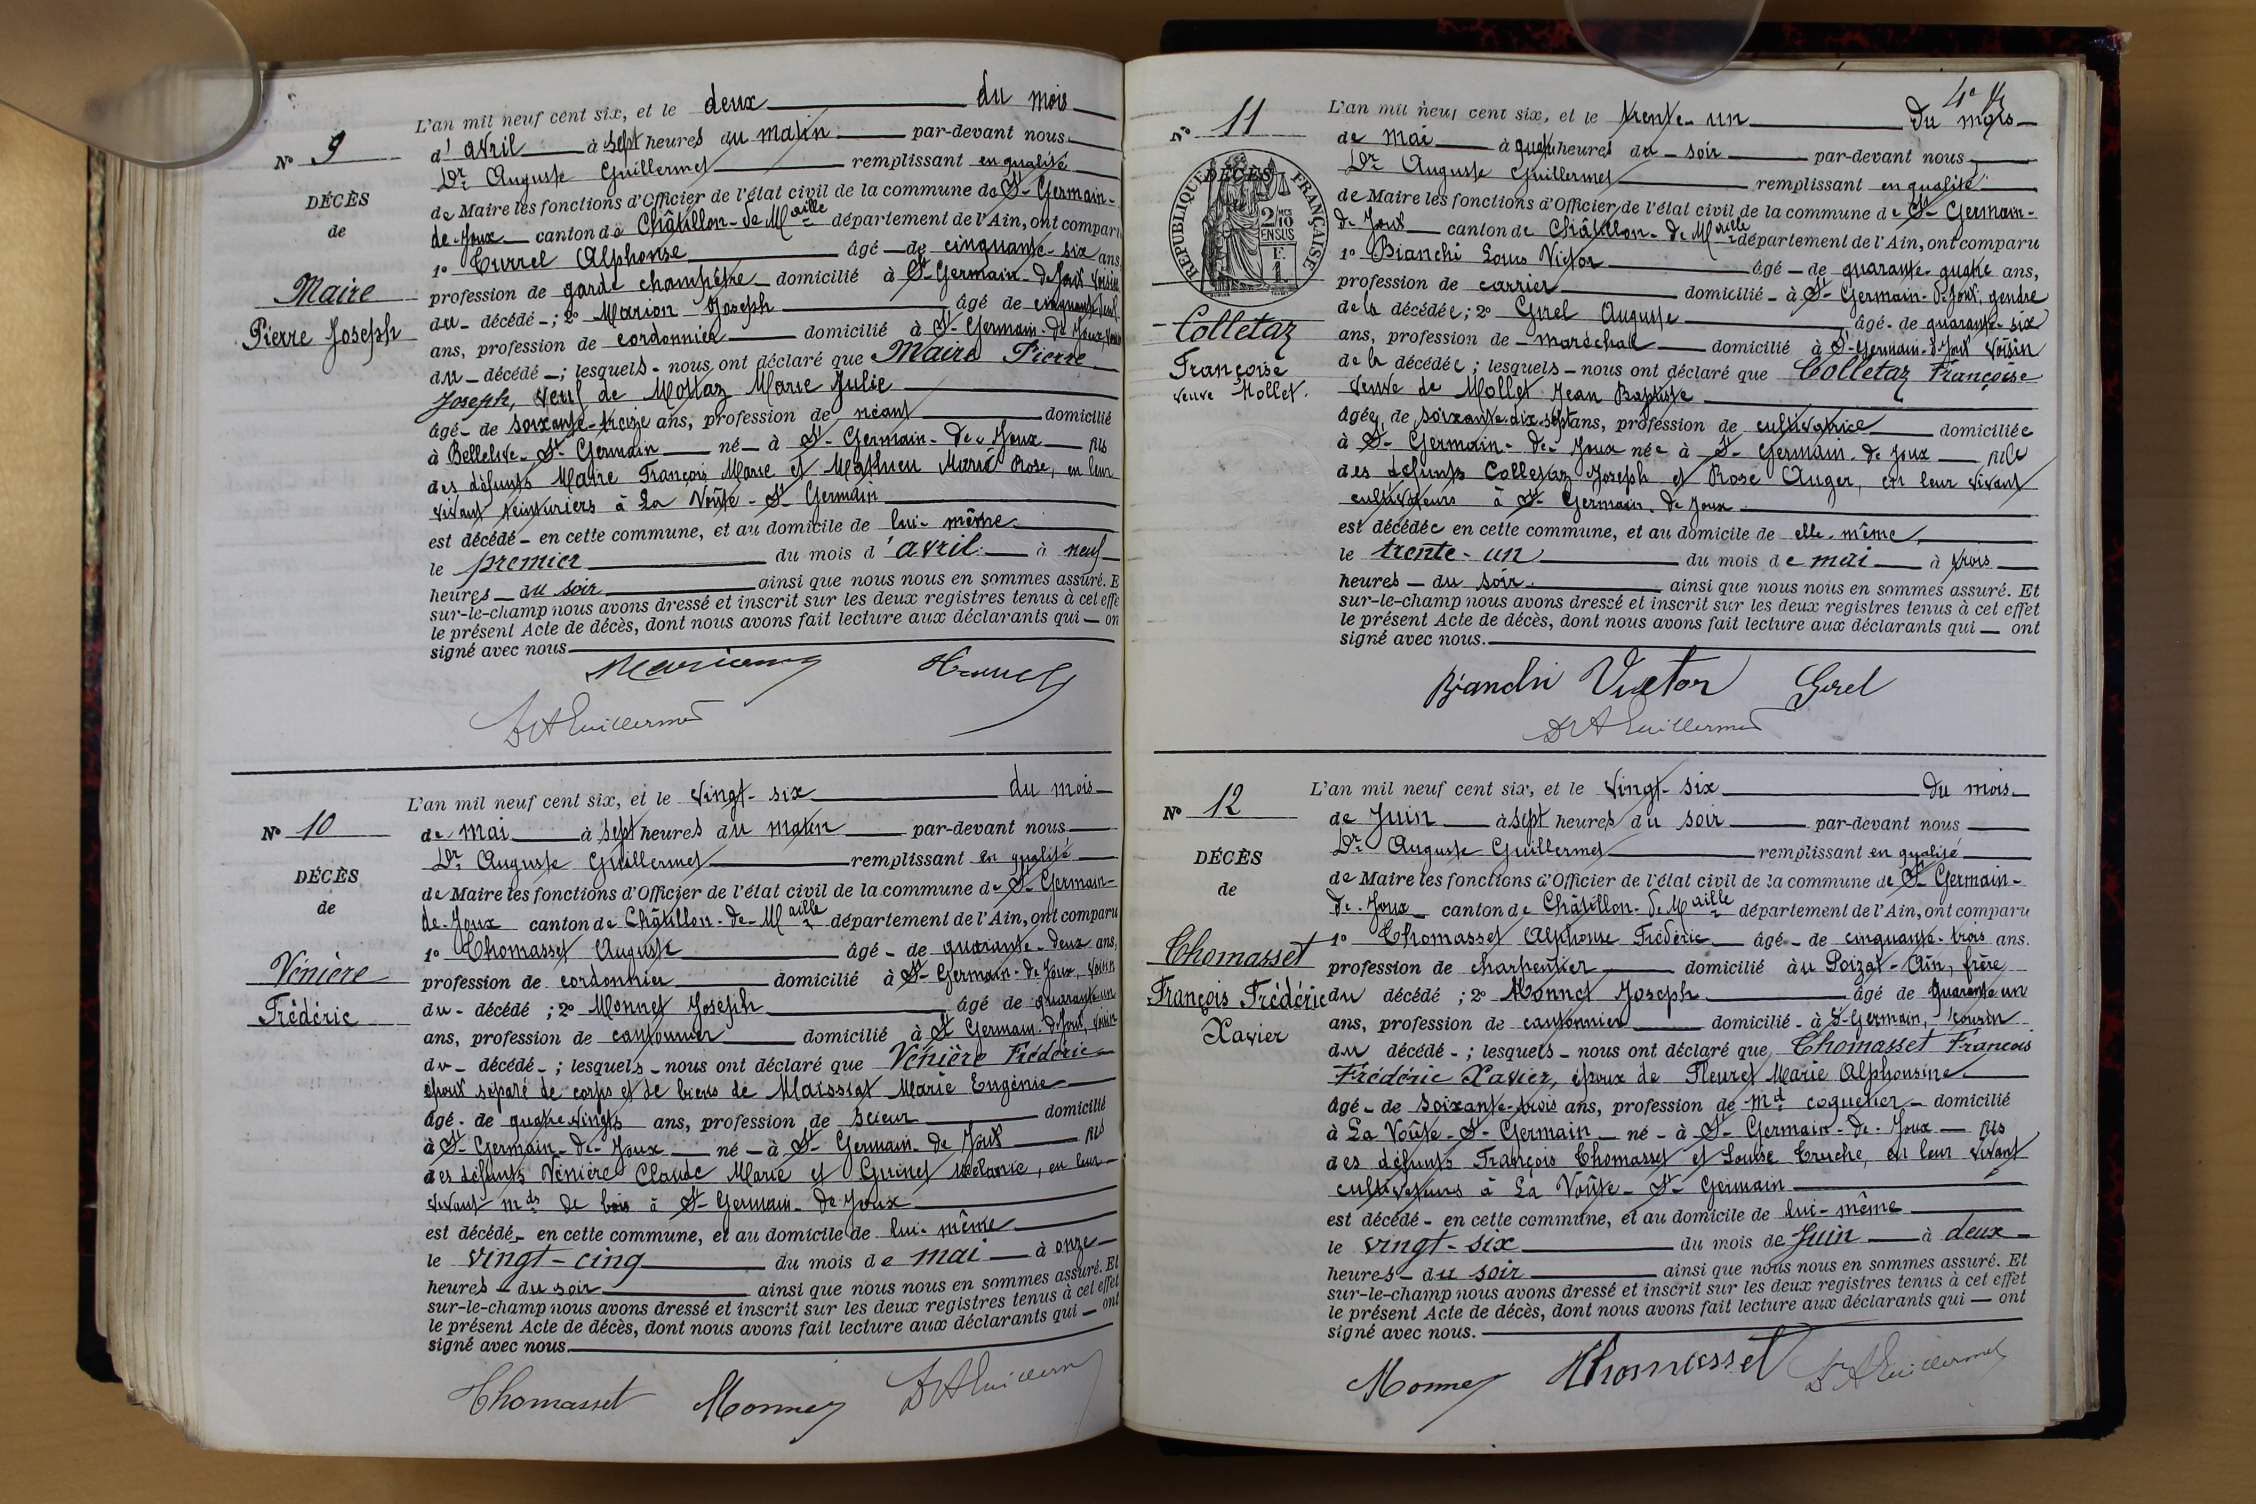 L'an mil neuf cent six, et le deux du mois
N° 9
d' avril à sept heures du matin par-devant nous
Dr Auguste Guillermet remplissant en qualité
DÉCÈS
de Maire les fonctions d'Officier de l'état civil de la commune de St-Germain-
de
de-Joux canton de Châtillon-de-Maille département de l'Ain, ont comparu
1° Turrel Alphonse âgé de cinquante-six ans,
Maire
profession de garde champêtre domicilié à St-Germain-de-Joux voisin
Pierre Joseph
du décédé; 2° Marion Joseph âgé de cinquante-neuf
ans, profession de cordonnier domicilié à St-Germain-de-Joux, voisin
du décédé; lesquels nous ont déclaré que Maire Pierre
Joseph, veuf de Mottaz Marie Julie
âgé de soixante-treize ans, profession de néant domicilié
à Belleleve-St-Germain né à St-Germain-de-Joux fils
des défunts Maire François Marie et Mathieu Marie Rose, en leur
vivant teinturiers à La Voûte-St-Germain
est décédé en cette commune, et au domicile de lui-même
le premier du mois d'avril à neuf
heures du soir ainsi que nous nous en sommes assuré. E
sur-le-champ nous avons dressé et inscrit sur les deux registres tenus à cet effe
le présent Acte de décès, dont nous avons fait lecture aux déclarants qui on
signé avec nous
Marion
DrAGuillermet
L'an mil neuf cent six, et le vingt-six du mois
N° 10
de mai à sept heures du matin par-devant nous
Dr Auguste Guillermet remplissant en qualité
DÉCÈS
de Maire les fonctions d'Officier de l'état civil de la commune de St-Germain-
de
de-Joux canton de Châtillon-de-Maille département de l'Ain, ont comparu
1° Thomasset Auguste âgé de quarante-deux ans,
Vénière
profession de cordonnier domicilié à St-Germain-de-Joux, voisin
Frédéric
du décédé; 2° Monnet Joseph âgé de quarante un
ans, profession de cantonnier domicilié à St Germain-d-Joux, voisin
du décédé; lesquels nous ont déclaré que Vénière Frédéric
époux séparé de corps et de biens de Maissiat Marie Eugénie
âgé de quatre-vingts ans, profession de scieur domicilié
à St-Germain-de-Joux né à St-Germain-de-Joux fils
des défunts Vénière Claude Marie et Guinet Mélanie, en leur
vivant mds de bois à St-Germain-de-Joux
est décédé en cette commune, et au domicile de lui-même
le vingt-cinq du mois de mai à onze
heures du soir ainsi que nous nous en sommes assuré. Et
sur-le-champ nous avons dressé et inscrit sur les deux registres tenus à cet effet
le présent Acte de décès, dont nous avons fait lecture aux déclarants qui ont
signé avec nous.
Thomasset Monnet DrAGuillermet
4e
L'an mil neuf cent six, et le trente-un du mois
N° 11
de mai à quatre heures du soir par-devant nous
Dr Auguste Guillermet remplissant en qualité
DÉCÈS
RÉPUBLIQUE FRANÇAISE
2/10 MES EN SUS
F. 1
de Maire les fonctions d'Officier de l'état civil de la commune de St-Germain-
de Joux canton de Châtillon-de-Maille département de l'Ain, ont comparu
1° Bianchi Louis Victor âgé de quarante-quatre ans,
profession de carrier domicilié à St-Germain-de-Joux, gendre
Colletaz
de la décédée; 2° Girel Auguste âgé de quarante-six
ans, profession de maréchal domicilié à St-Germain-d-Joux voisin
Françoise
de la décédée; lesquels nous ont déclaré que Colletaz Françoise
veuve Mollet.
veuve de Mollet Jean Baptiste
âgée de soixante-dix-sept ans, profession de cultivatrice domiciliée
à St-Germain-de-Joux née à St-Germain-de Joux fille
des défunts Colletaz Joseph et Rose Auger, en leur vivant
cultivateurs à St-Germain-de Joux
est décédée en cette commune, et au domicile de elle-même
le trente-un du mois de mai à trois
heures du soir ainsi que nous nous en sommes assuré. Et
sur-le-champ nous avons dressé et inscrit sur les deux registres tenus à cet effet
le présent Acte de décès, dont nous avons fait lecture aux déclarants qui ont
signé avec nous.
Bianchi Victor Girel
DrAGuillermet
L'an mil neuf cent six, et le vingt-six du mois
N° 12
de Juin à sept heures du soir par-devant nous
Dr Auguste Guillermet remplissant en qualité
DÉCÈS
de Maire les fonctions d'Officier de l'état civil de la commune de St-Germain-
de
de-Joux canton de Châtillon-de Maille département de l'Ain, ont comparu
1° Thomasset Alphonse Frédéric âgé de cinquante-trois ans.
Thomasset
profession de charpentier domicilié au Poizat-Ain, frère
François Frédéric
du décédé; 2° Monnet Joseph âgé de quarante un
Xavier
ans, profession de cantonnier domicilié à St-Germain, cousin
du décédé; lesquels nous ont déclaré que Thomasset François
Frédéric Xavier, époux de Fleuret Marie Alphonsine
âgé de soixante-trois ans, profession de md coquetier domicilié
à La Voûte-St-Germain né à St-Germain-de-Joux fils
des défunts François Thomasset et Louise Truche, en leur vivant
cultivateurs à La Voûte-St-Germain
est décédé en cette commune, et au domicile de lui-même
le vingt-six du mois de Juin à deux
heures du soir ainsi que nous nous en sommes assuré. Et
sur-le-champ nous avons dressé et inscrit sur les deux registres tenus à cet effet
le présent Acte de décès, dont nous avons fait lecture aux déclarants qui ont
signé avec nous.
Monnet Thomasset DrAGuillermet